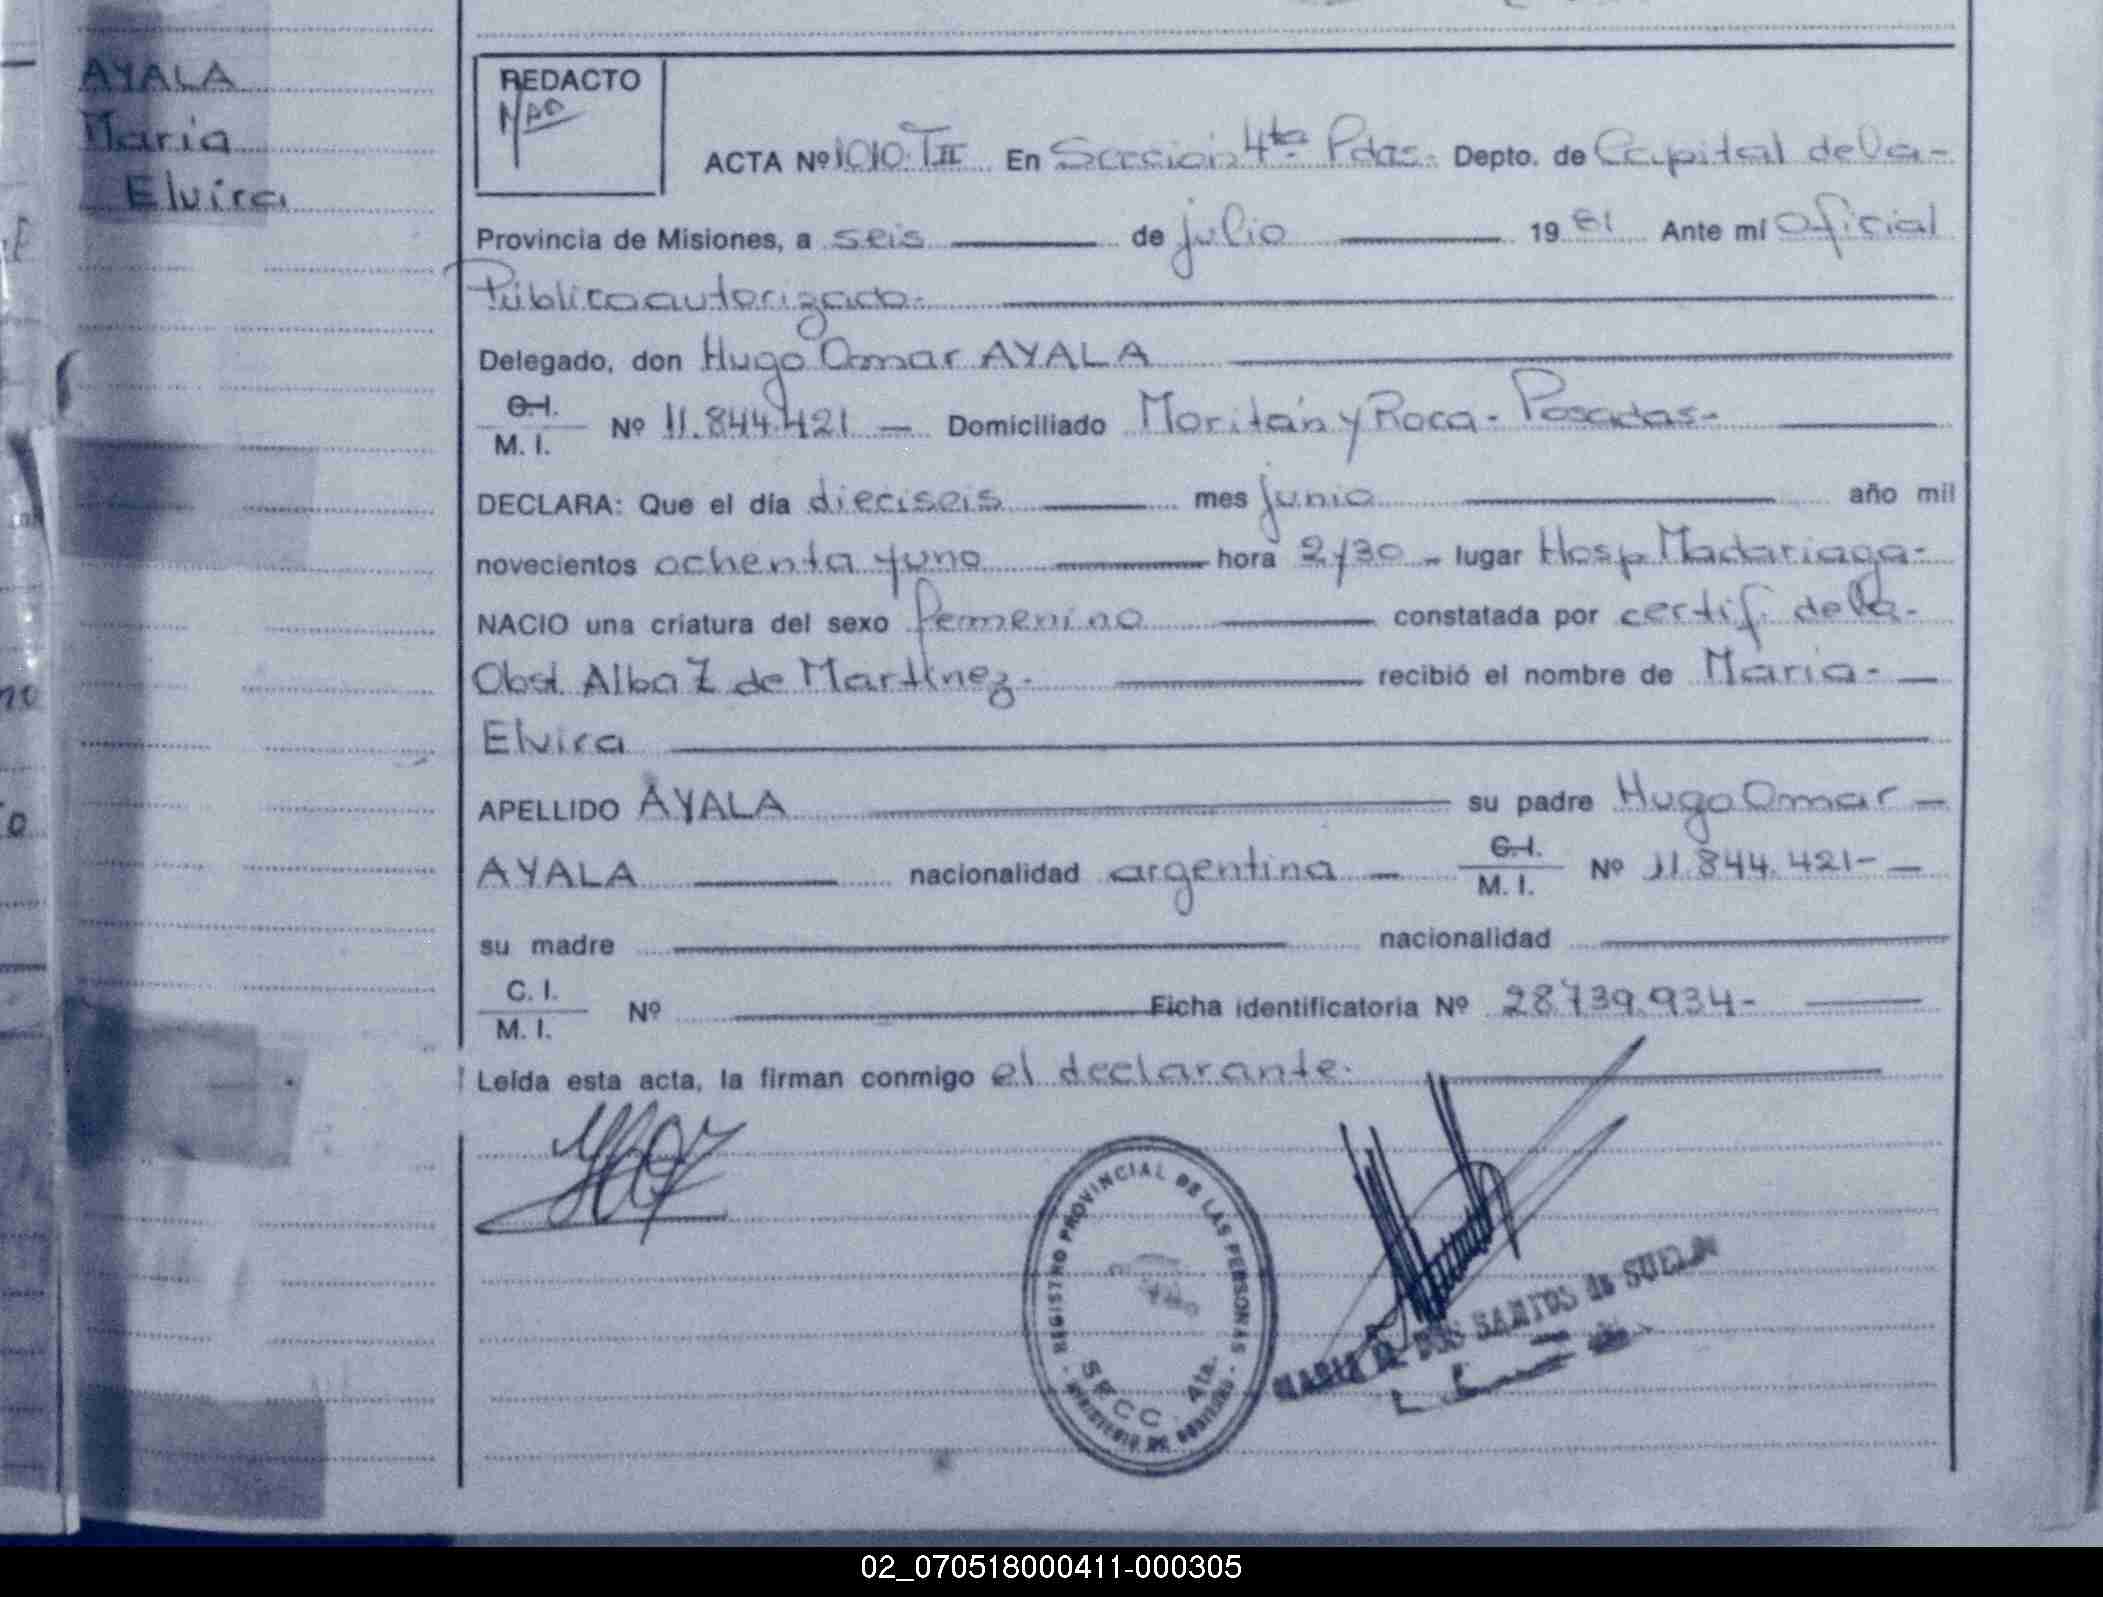 AYALA
Maria
Elvira
REDACTO
ACTA Nº 1010 TII En Seccion 4ta Pdas. Depto. de Capital de la-
Provincia de Misiones, a seis de julio 19 81 Ante mí Oficial
Público autorizado.
Delegado, don Hugo Omar AYALA
C.I.
M.I. Nº 11.844.421 — Domiciliado Moritán y Roca - Posadas-
DECLARA: Que el día dieciseis mes junio año mil
novecientos ochenta y uno hora 2y30 - lugar Hosp Madariaga-
NACIO una criatura del sexo femenino constatada por certif. de la-
Obst. Alba Z de Martínez. recibió el nombre de Maria-
Elvira
APELLIDO AYALA su padre Hugo Omar
AYALA nacionalidad argentina — C.I.
M.I. Nº 11.844.421-
su madre nacionalidad
C.I.
M.I. Nº Ficha identificatoria Nº 28.739.934-
Leída esta acta, la firman conmigo el declarante.
REGISTRO PROVINCIAL DE LAS PERSONAS
SECC. 4ta.
MINISTERIO DE GOBIERNO
DOS SANTOS de
02_070518000411-000305